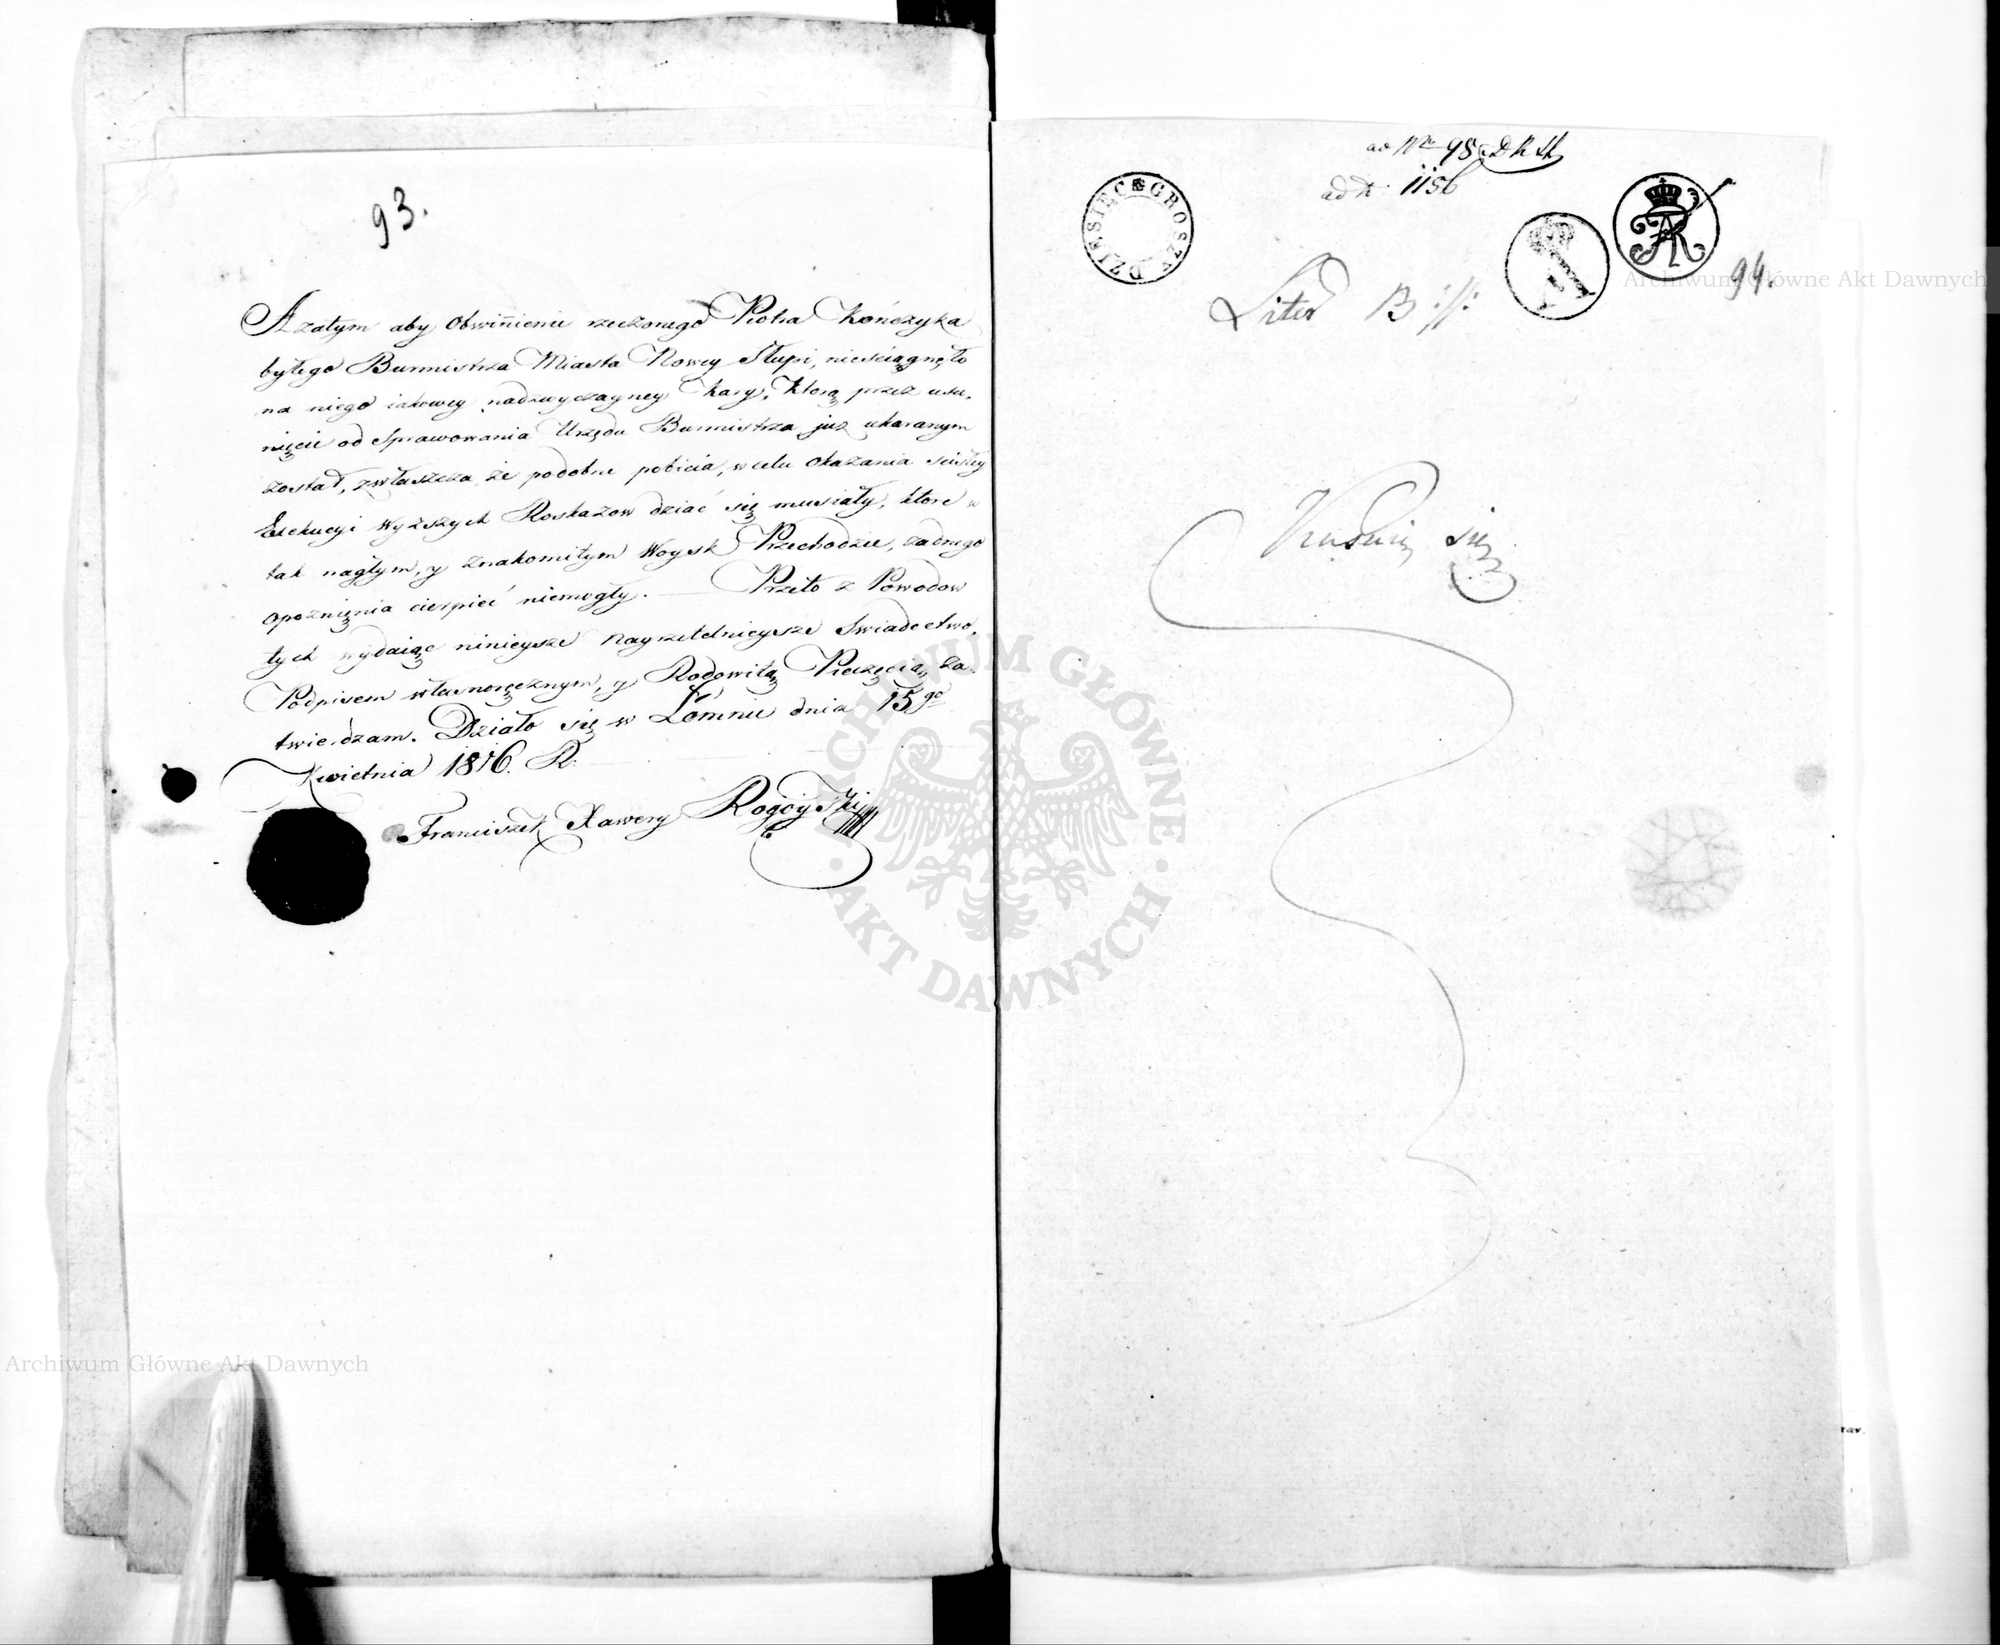 93.
A zatym aby obwinienie rzeczonego Piotra Kończyka
byłego Burmistrza Miasta Nowey Słupi, nieściągnęło
na niego iakowey nadzwyczayney Kary, którą przez usu„
nięcie od Sprawowania Urzędu Burmistrza już ukaranym
został, zwłaszcza że podobne pobicia, w celu okazania ścisłey
Exekucyi wyższych Roskazow dziać się musiały, ktore w
tak nagłym, y znakomitym Woysk Przechodzie, żadnego
opoznięnia cierpieć niemogły. — Przeto z Powodow
tych wydaiąc ninieysze nayrzetelnieysze Swiadectwo,
Podpisem własnoręcznym, y Rodowitą Pieczęcią, za„
twierdzam. Działo się w Łomnu dnia 15go
Kwietnia 1816. R.
Franciszek Xawery Rogóyski
ad Nr 98
ad N. 1156
DZIESIĘC GROSZY
94.
Liter B ://:
się
ARCHIWUM GŁÓWNE AKT DAWNYCH
Archiwum Główne Akt Dawnych
Archiwum Główne Akt Dawnych